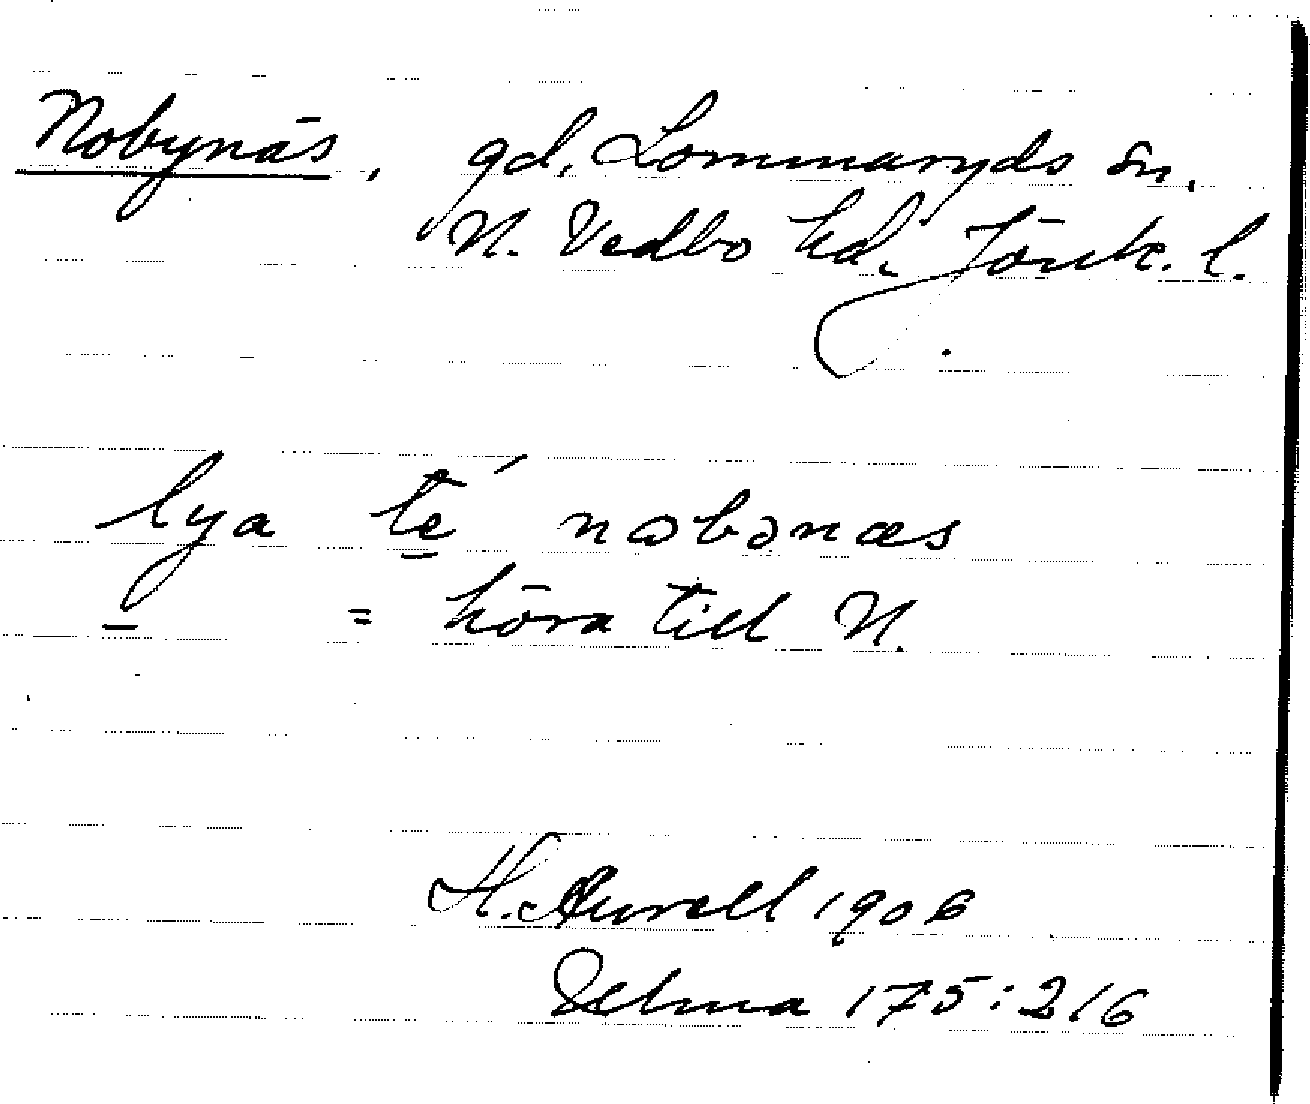 Nobynäs, gd, Lommaryds sn.
N. Vedbo hd, Jönk. l.
lya té nɷbɔnæs
= höra till N.
H. Aurell 1906
Ulma 175:216